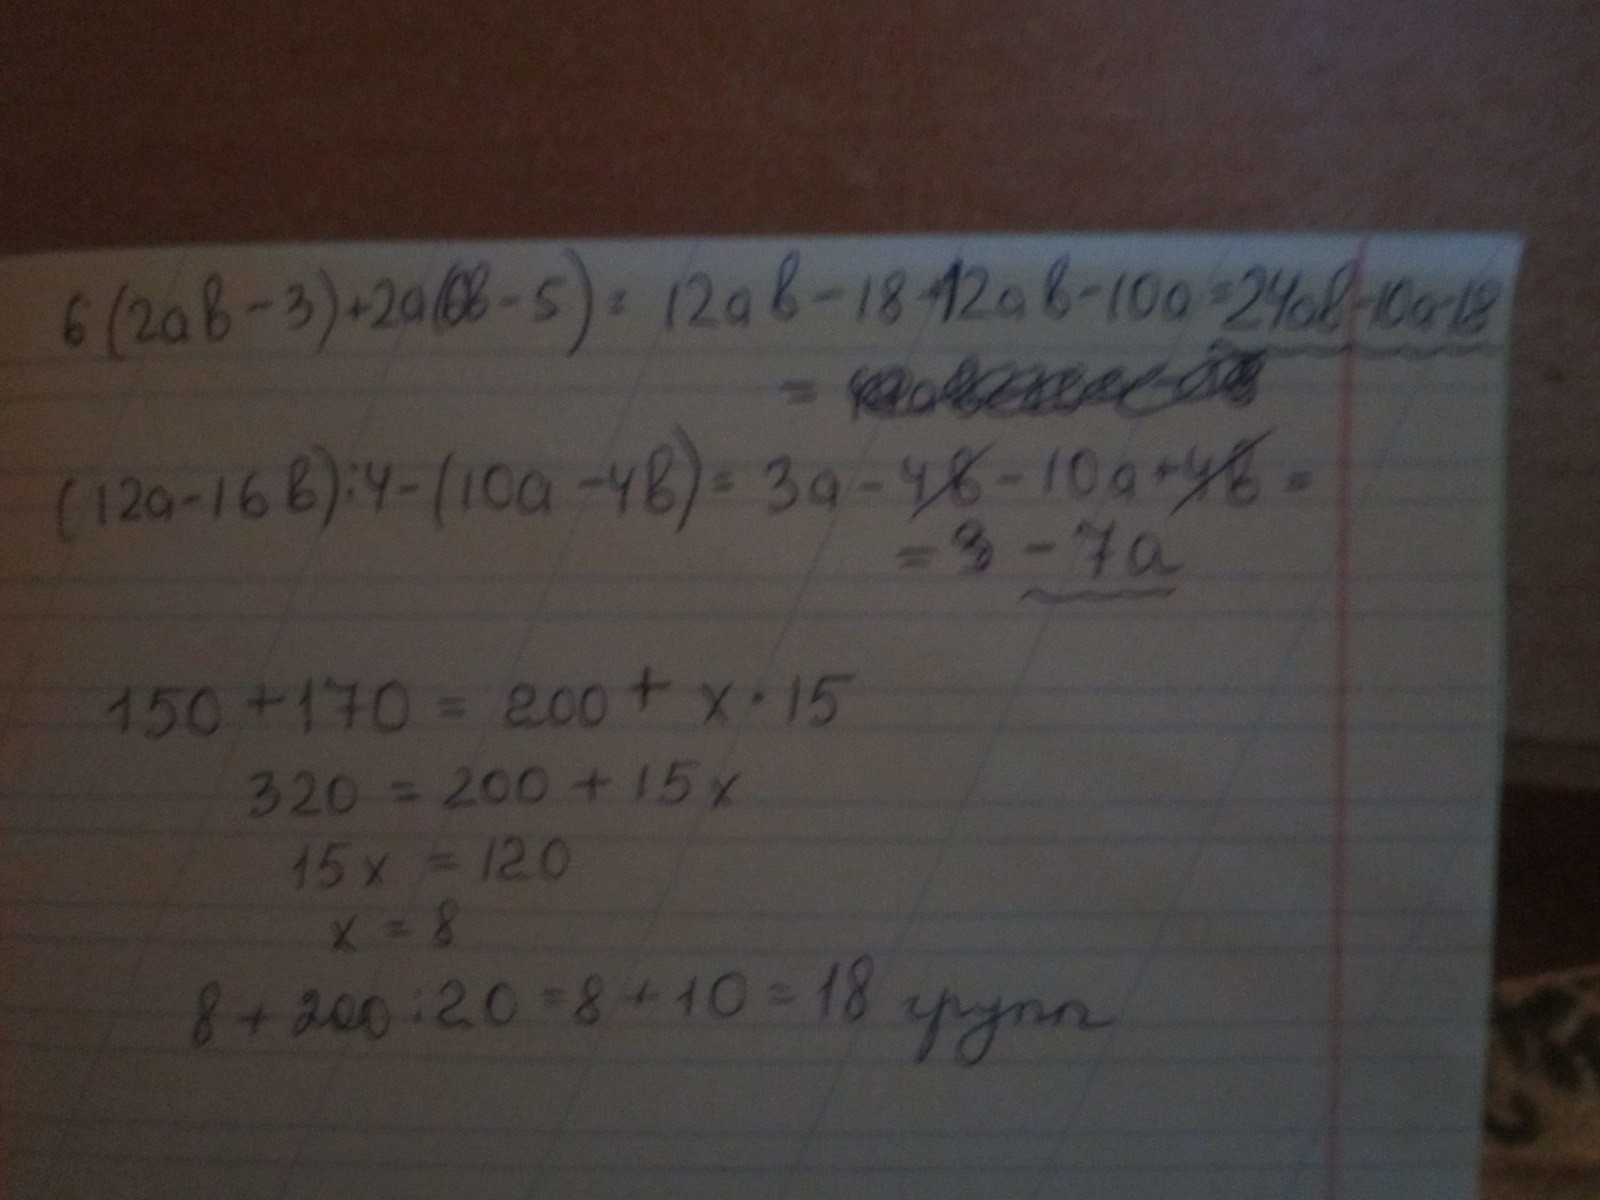 6(2ab-3)+2a(6b-5)= 12ab-18+12ab-10a=24ab-10a-18
=
(12a-16b):4-(10a-4b)= 3a-4b-10a+4b=
= -7a
150+170 = 200+ x·15
320 = 200+15x
15x = 120
x = 8
8+200:20=8+10=18 групп